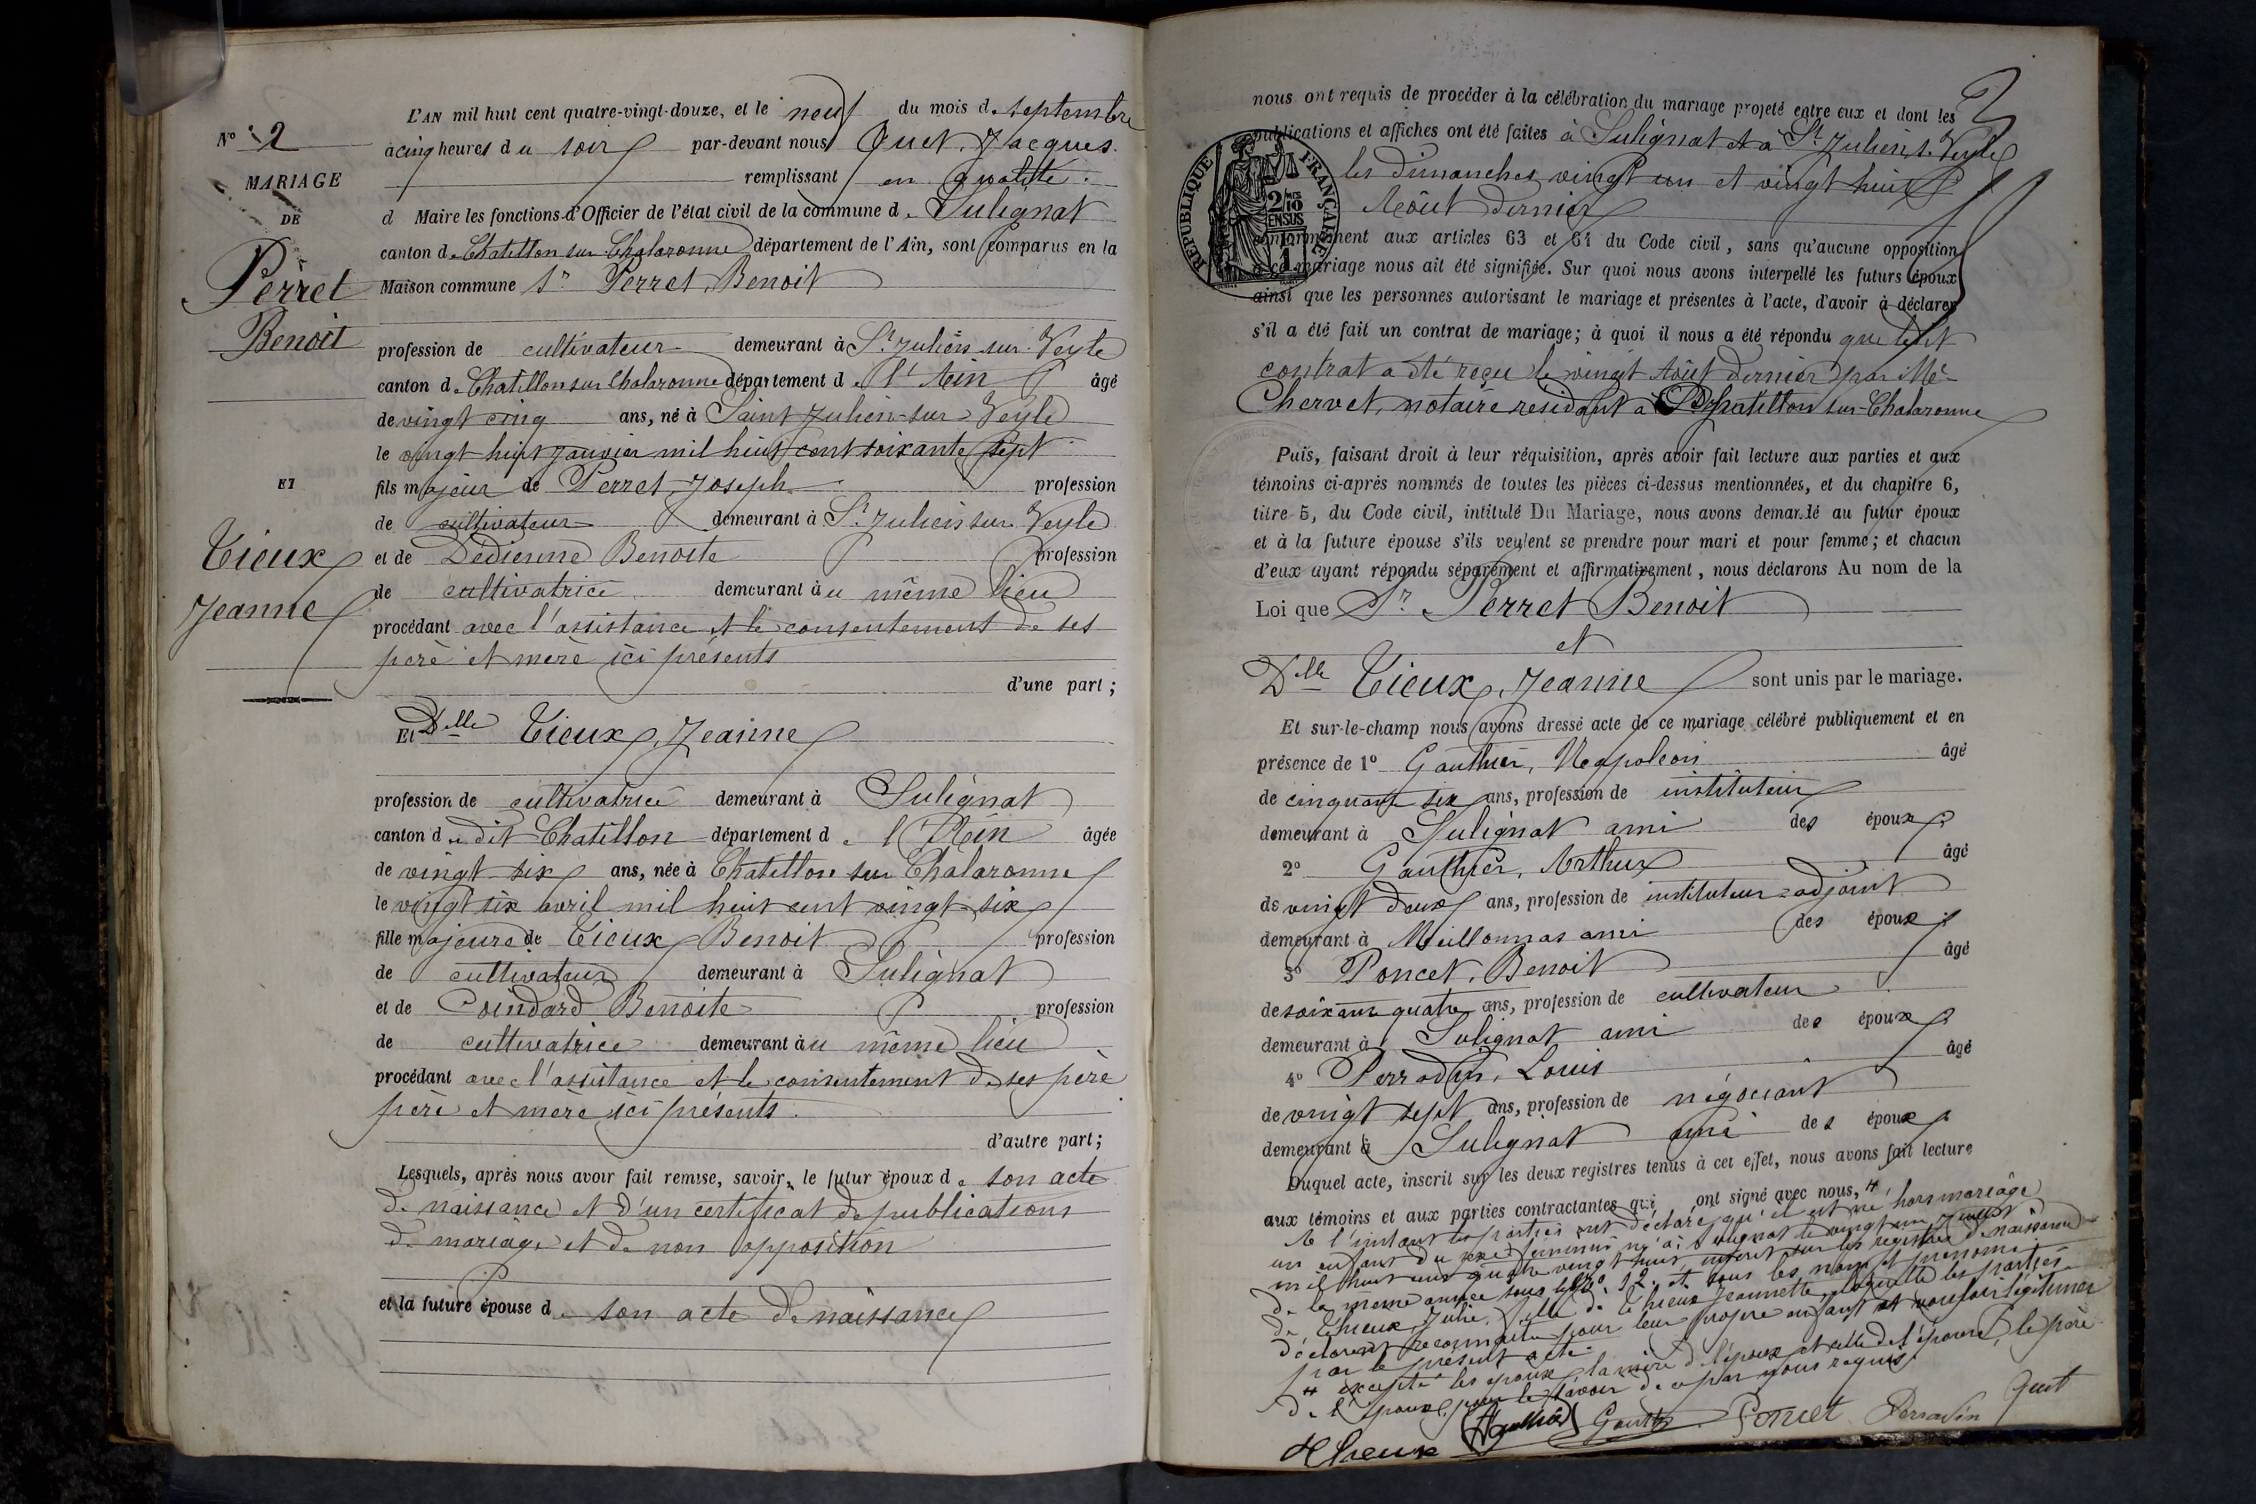 N° 2
MARIAGE
DE
Perret
Benoit
ET
Tieux
Jeanne
L'AN mil huit cent quatre-vingt-douze, et le neuf du mois de septembre
à cinq heures du soir par-devant nous Quet, Jacques
remplissant en qualité
d Maire les fonctions d'Officier de l'état civil de la commune de Sulignat
canton de Chatillon sur Chalaronne département de l'Ain, sont comparus en la
Maison commune Sr Perret, Benoit
profession de cultivateur demeurant à St Julien sur Veyle
canton de Chatillon sur Chalaronne département de l'Ain âgé
de vingt cinq ans, né à Saint Julien-sur-Veyle
le vingt huit janvier mil huit cent soixante sept
fils majeur de Perret, Joseph profession
de cultivateur demeurant à St Julien sur Veyle
et de Dedienne Benoite profession
de cultivatrice demeurant àu même lieu
procédant avec l'assistance et le consentement de ses
père et mère ici présents
d'une part;
Et Dlle Tieux, Jeanne
profession de cultivatrice demeurant à Sulignat
canton du dit Chatillon département de l'Ain âgée
de vingt-six ans, née à Chatillon sur Chalaronne
le vingt six avril mil huit cent vingt-six
fille majeure de Tieux Benoit profession
de cultivateur demeurant à Sulignat
et de Coindard Benoite profession
de cultivatrice demeurant àu même lieu
procédant avec l'assistance et le consentement de ses père
père et mère ici présents.
d'autre part;
Lesquels, après nous avoir fait remise, savoir, le futur époux de son acte
de naissance et d'un certificat de publications
de mariage et de non opposition
et la future épouse de son acte de naissance
nous ont requis de procéder à la célébration du mariage projeté entre eux et dont les
publications et affiches ont été faites à Sulignat et à St Julien s. Veyle
les dimanches vingt un et vingt huit
Août dernier
RÉPUBLIQUE FRANÇAISE
2/10 EN SUS
conformément aux articles 63 et 64 du Code civil, sans qu'aucune opposition
à ce mariage nous ait été signifiée. Sur quoi nous avons interpellé les futurs époux
ainsi que les personnes autorisant le mariage et présentes à l'acte, d'avoir à déclarer
s'il a été fait un contrat de mariage; à quoi il nous a été répondu que ledit
contrat a été reçu le vingt Août dernier par Me
Chervet, notaire residant à Chatillon sur-Chalaronne
Puis, faisant droit à leur réquisition, après avoir fait lecture aux parties et aux
témoins ci-après nommés de toutes les pièces ci-dessus mentionnées, et du chapitre 6,
titre 5, du Code civil, intitulé Du Mariage, nous avons demandé au futur époux
et à la future épouse s'ils veulent se prendre pour mari et pour femme; et chacun
d'eux ayant répondu séparément et affirmativement, nous déclarons Au nom de la
Loi que Sr Perret Benoit
et
Dlle Tieux, Jeanne sont unis par le mariage.
Et sur-le-champ nous avons dressé acte de ce mariage célébré publiquement et en
présence de 1° Gauthier, Napoléon âgé
de cinquante six ans, profession de instituteur
demeurant à Sulignat ami des époux
2° Gauthier, Arthur âgé
de vingt deux ans, profession de instituteur-adjoint
demeurant à Meillonnas ami des époux
3° Poncet, Benoit âgé
de soixante quatre ans, profession de cultivateur
demeurant à Sulignat ami des époux
4° Perradin, Louis âgé
de vingt sept ans, profession de négociant
demeurant à Sulignat ami des époux
Duquel acte, inscrit sur les deux registres tenus à cet effet, nous avons fait lecture
aux témoins et aux parties contractantes qui ont signé avec nous, #
A l'instant les parties ont déclaré qu'il est né hors mariage
un enfant du sexe féminin né à Sulignat le vingt un Juillet
mil huit cent quatre vingt huit, inscrit sur les registres de naissance
de la même année sous le N° 12 et sous les nom et prénoms
de Thieux, Julie, fille de Thieux Jeannette, laquelle les parties
déclarent reconnaitre pour leur propre enfant et vouloir légitimer
par le présent acte.
# excepté les époux, la mère de l'époux et celle de l'épouse, le père
de l'époux, pour le savoir de ce par nous requis.
Thieux Gauthier Poncet Perradin Quet